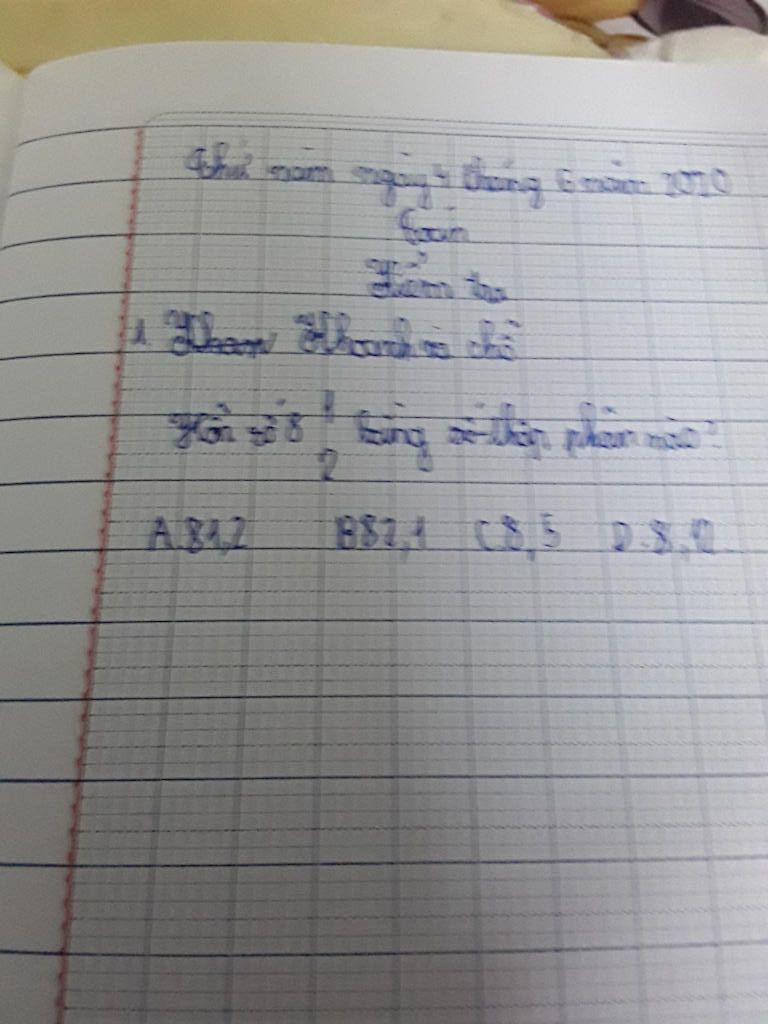 Thứ năm ngày 4 tháng 6 năm 2020
Toán
Kiểm tra
1. Khoanh vào chỗ
Hỗn số 8 1/2 bằng số thập phân nào?
A. 81,2 B 82,1 C. 8,5 D. 8,12